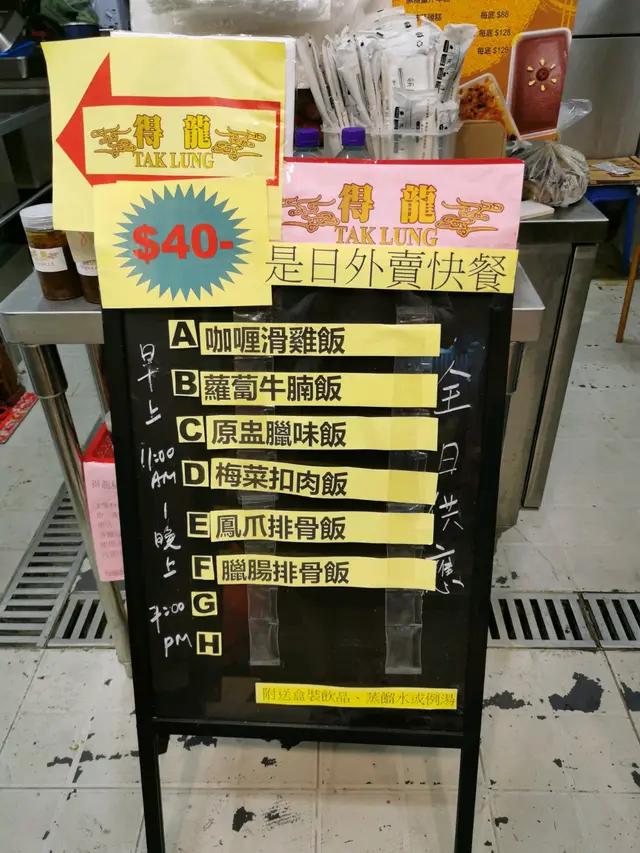 每底 $88
每底 $128
每底 $128
得龍
TAK LUNG
得龍
TAK LUNG
$40-
是日外賣快餐
A 咖喱滑雞飯
B 蘿蔔牛腩飯
C 原盅臘味飯
D 梅菜扣肉飯
E 鳳爪排骨飯
F 臘腸排骨飯
G
H
早上
11:00
AM
|
晚上
7:00
PM
全日供應
附送盒裝飲品、蒸餾水或例湯